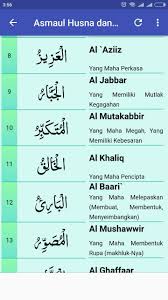 3:56
Asmaul Husna dan...
8
الْعَزِيزُ
Al `Aziiz
Yang Maha Perkasa
9
الْجَبَّارُ
Al Jabbar
Yang Memiliki Mutlak
Kegagahan
10
الْمُتَكَبِّرُ
Al Mutakabbir
Yang Maha Megah, Yang
Memiliki Kebesaran
11
الْخَالِقُ
Al Khaliq
Yang Maha Pencipta
12
الْبَارِئُ
Al Baari`
Yang Maha Melepaskan
(Membuat, Membentuk,
Menyeimbangkan)
13
الْمُصَوِّرُ
Al Mushawwir
Yang Maha Membentuk
Rupa (makhluk-Nya)
Al Ghaffaar